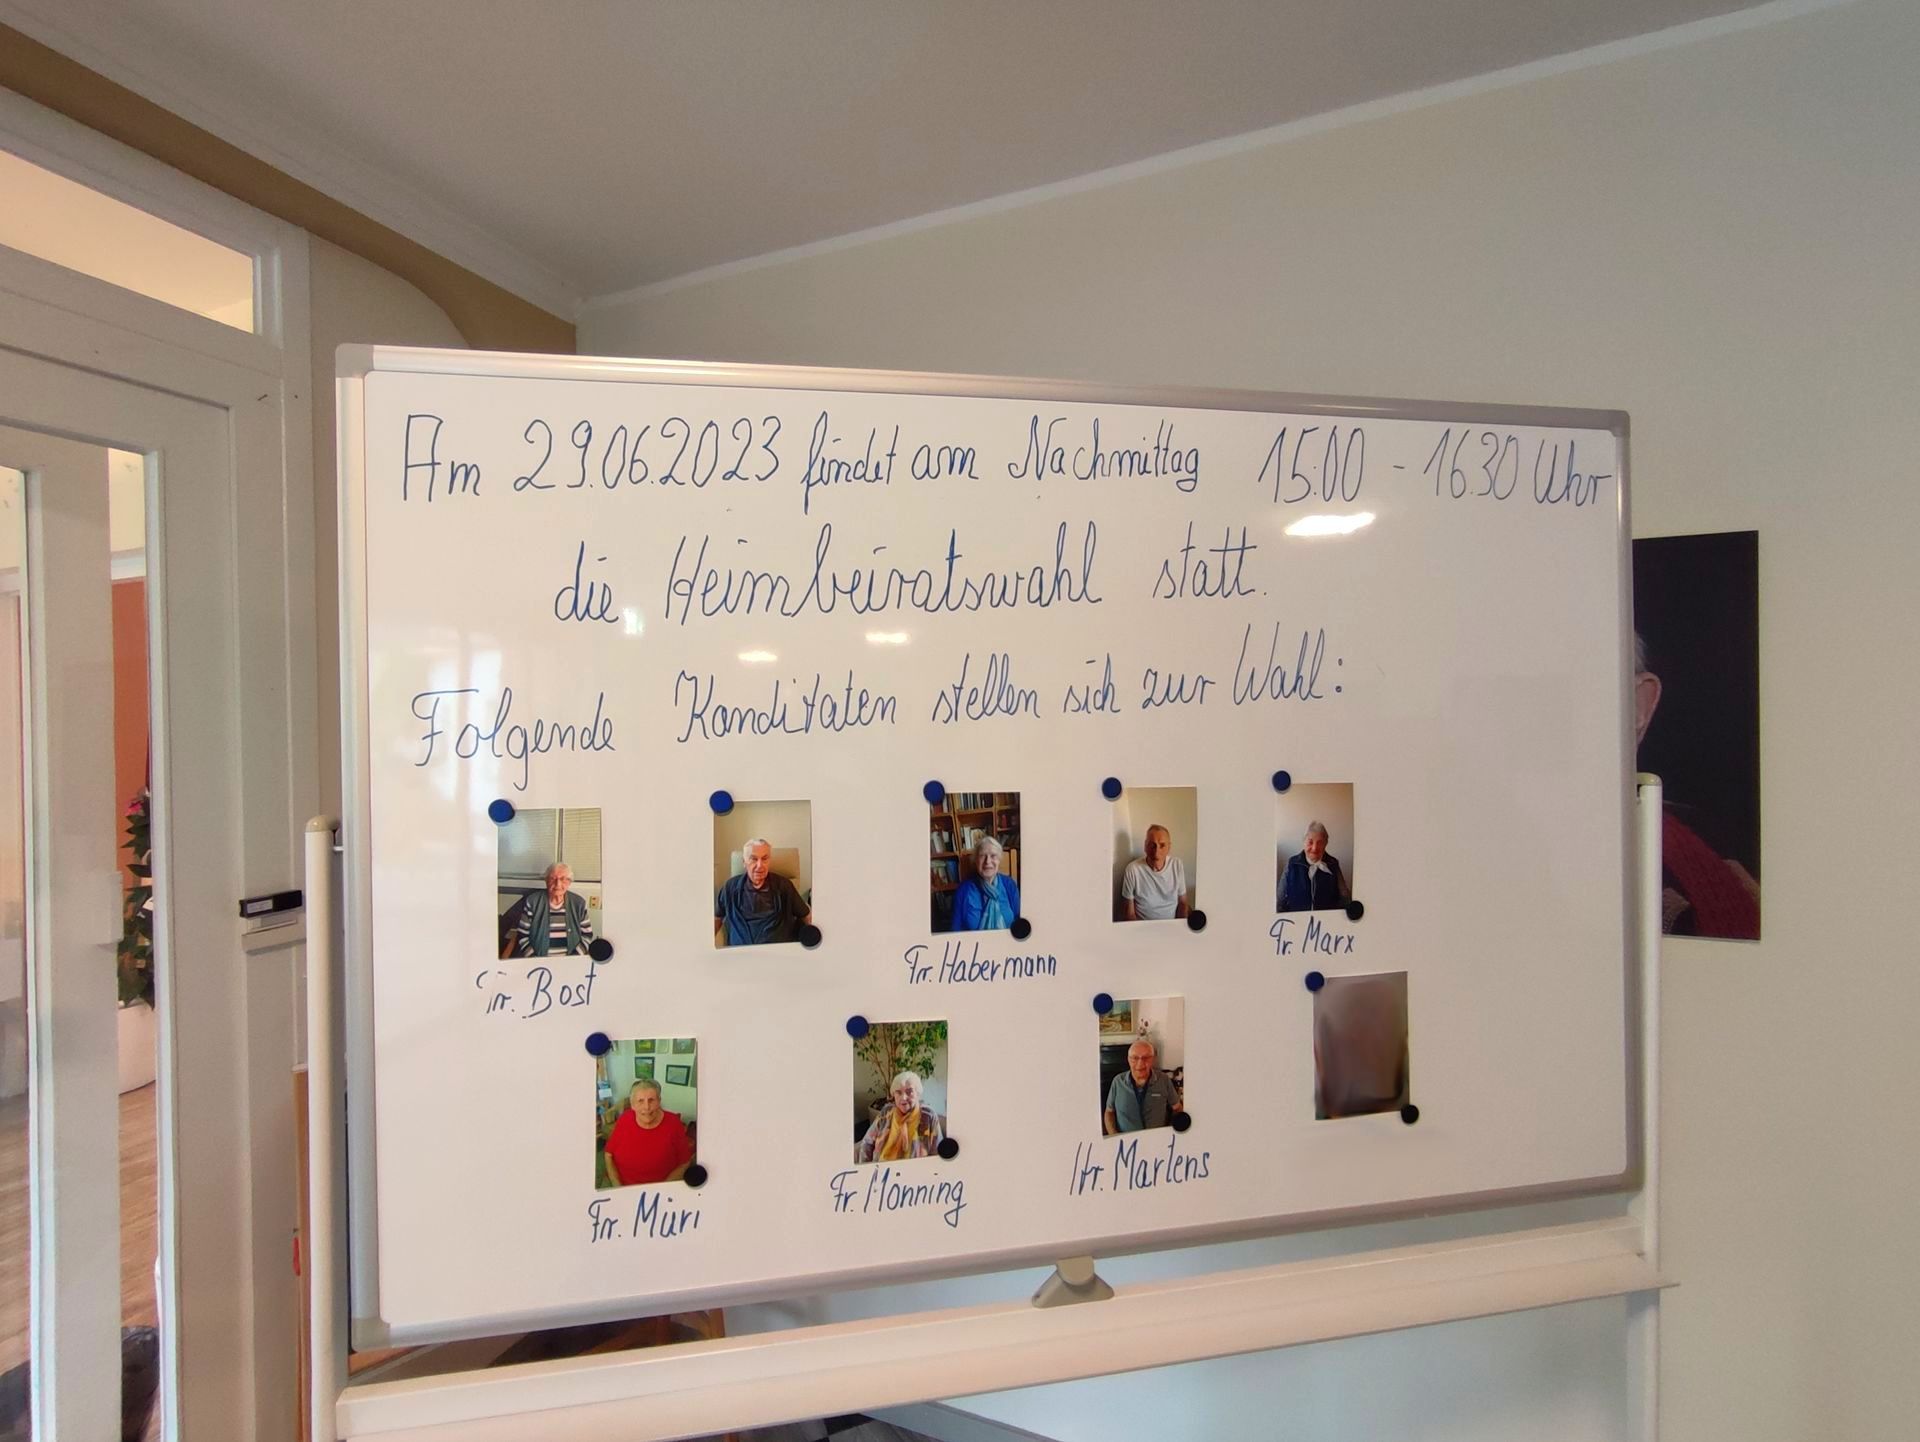 Am 29.06.2023 findet am Nachmittag 15.00 - 16.30 Uhr
die Heimbeiratswahl statt.
Folgende Kanditaten stellen sich zur Wahl:
Fr. Bost
Fr. Habermann
Fr. Marx
Fr. Müri
Fr. Mönning
Hr. Martens